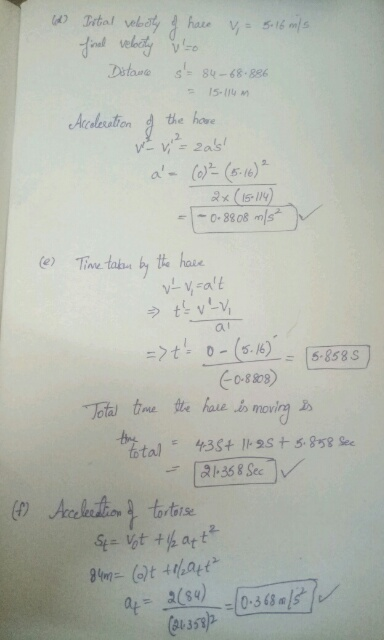 (d) Initial velocity of hare V₁ = 5.16 m/s
final velocity V'=0
Distance s' = 84-68.886
= 15.114 m
Acceleration of the hare
V'² - V₁'² = 2a's'
a' = (0)² - (5.16)²
2 x (15.114)
= -0.8808 m/s² ✓
(e) Time taken by the hare
V' - V₁ = a't
⇒ t' = V' - V₁
a'
=> t' = 0 - (5.16) = 5.858 S
(-0.8808)
Total time the hare is moving is
total = 4.3S + 11.2S + 5.858 Sec
= 21.358 Sec ✓
(f) Acceleration of tortoise
St = V₀t + 1/2 at t²
84m = (0)t + 1/2 at t²
at = 2(84) = 0.368 m/s² ✓
(21.358)²